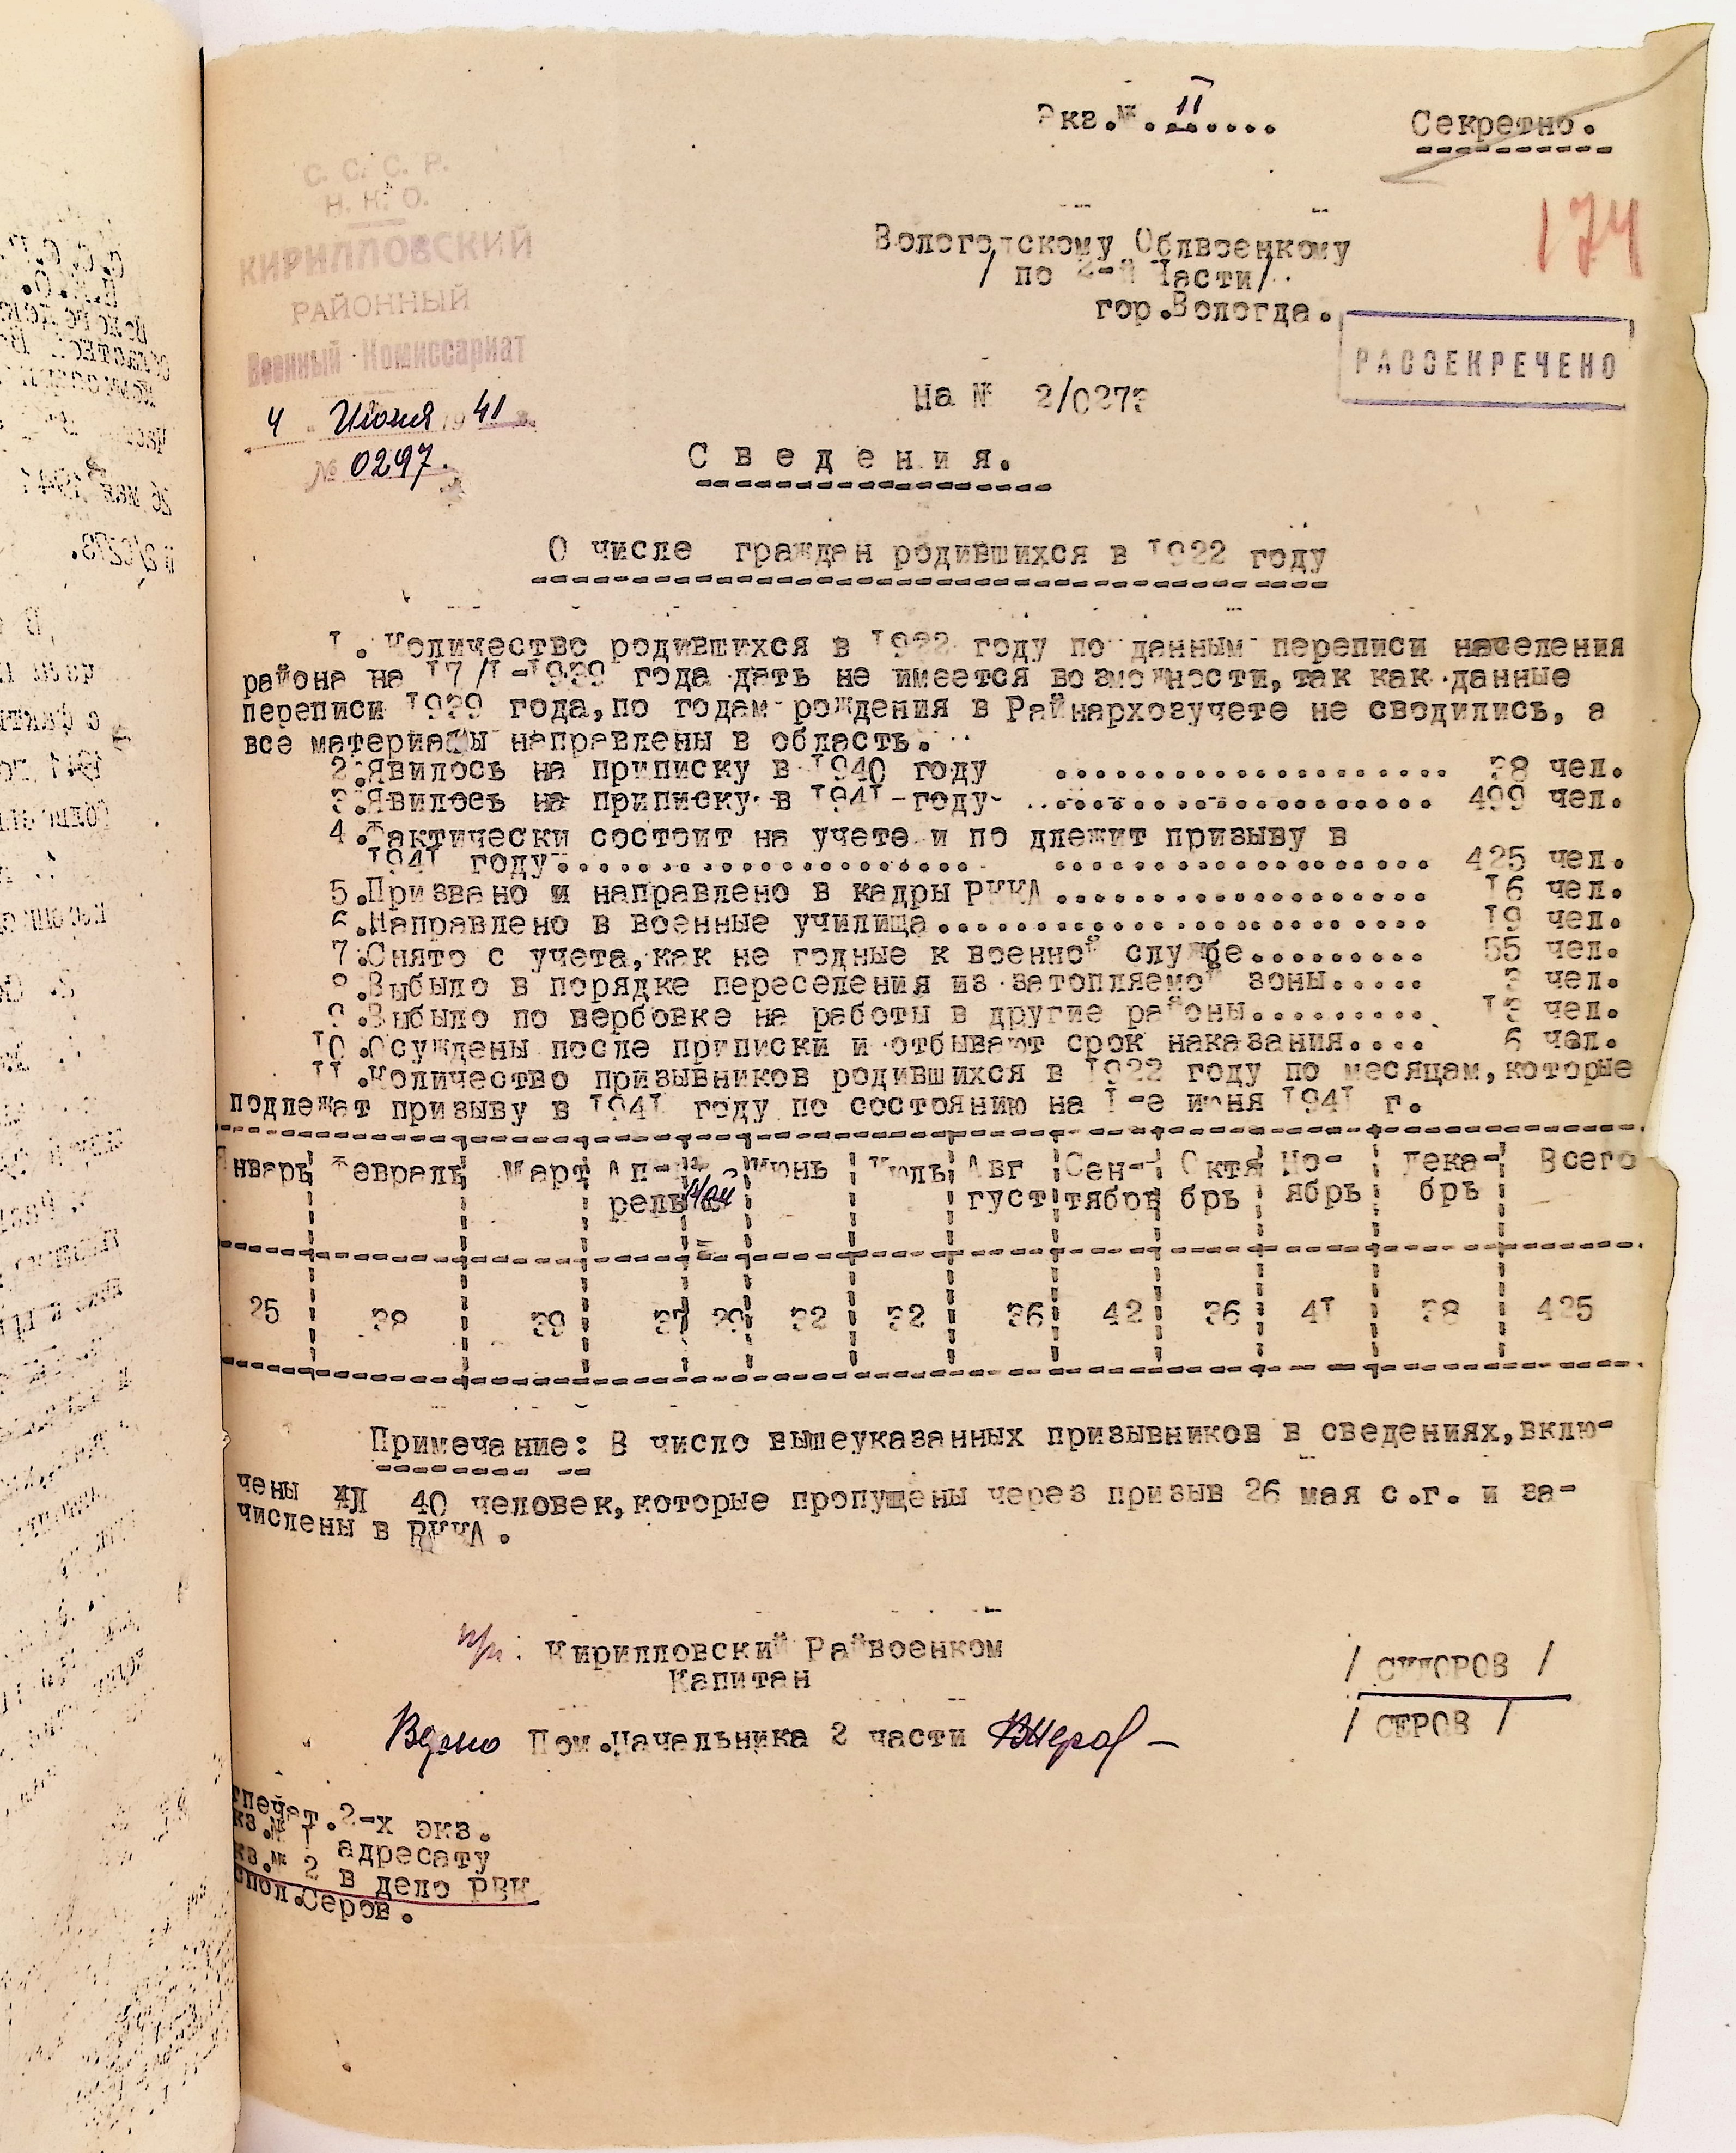 Экз.№.II.....
Секретно.
С. С. С. Р.
Н. К. О.
КИРИЛЛОВСКИЙ
РАЙОННЫЙ
Военный Комиссариат
4 . Июня 1941 г.
№ 0297.
174
Вологодскому Облвоенкому
/ по 2-й Части/
гор.Вологда.
РАССЕКРЕЧЕНО
На № 2/0273
С в е д е н и я.
О числе граждан родившихся в 1922 году
1. Количество родившихся в 1922 году по данным переписи населения
района на 17/1-1939 года дать не имеется возможности, так как данные
переписи 1939 года, по годам рождения в Райнархозучете не сводились, а
все материалы направлены в область.
2.Явилось на приписку в 1940 году .................... 38 чел.
3.Явилось на приписку в 1941 году .................... 499 чел.
4.Фактически состоит на учете и по длежит призыву в
1941 году........................................ 425 чел.
5.Призвано и направлено в кадры РККА .................... 16 чел.
6.Направлено в военные училища......................... 19 чел.
7.Снято с учета, как не годные к военной службе......... 55 чел.
8.Выбыло в порядке переселения из затопляемой зоны..... 3 чел.
9.Выбыло по вербовке на работы в другие районы......... 13 чел.
10.Осуждены после приписки и отбывают срок наказания.... 6 чел.
11.Количество призывников родившихся в 1922 году по месяцам, которые
подлежат призыву в 1941 году по состоянию на 1-е июня 1941 г.
Январь Февраль Март Ап- Май Июнь Июль Авг Сен- Октя Но- Дека- Всего
рель густ тябрь брь ябрь брь
25 38 39 37 29 32 32 36 42 36 41 38 425
Примечание: В число вышеуказанных призывников в сведениях, вклю-
чены 40 человек, которые пропущены через призыв 26 мая с.г. и за-
числены в РККА.
п/п: Кирилловский Райвоенком
Капитан / СИДОРОВ /
Верно Пом.Начальника 2 части / СЕРОВ /
тпечат.2-х экз.
кз.№ 1 адресату
кз.№ 2 в дело РВК
спол.Серов.